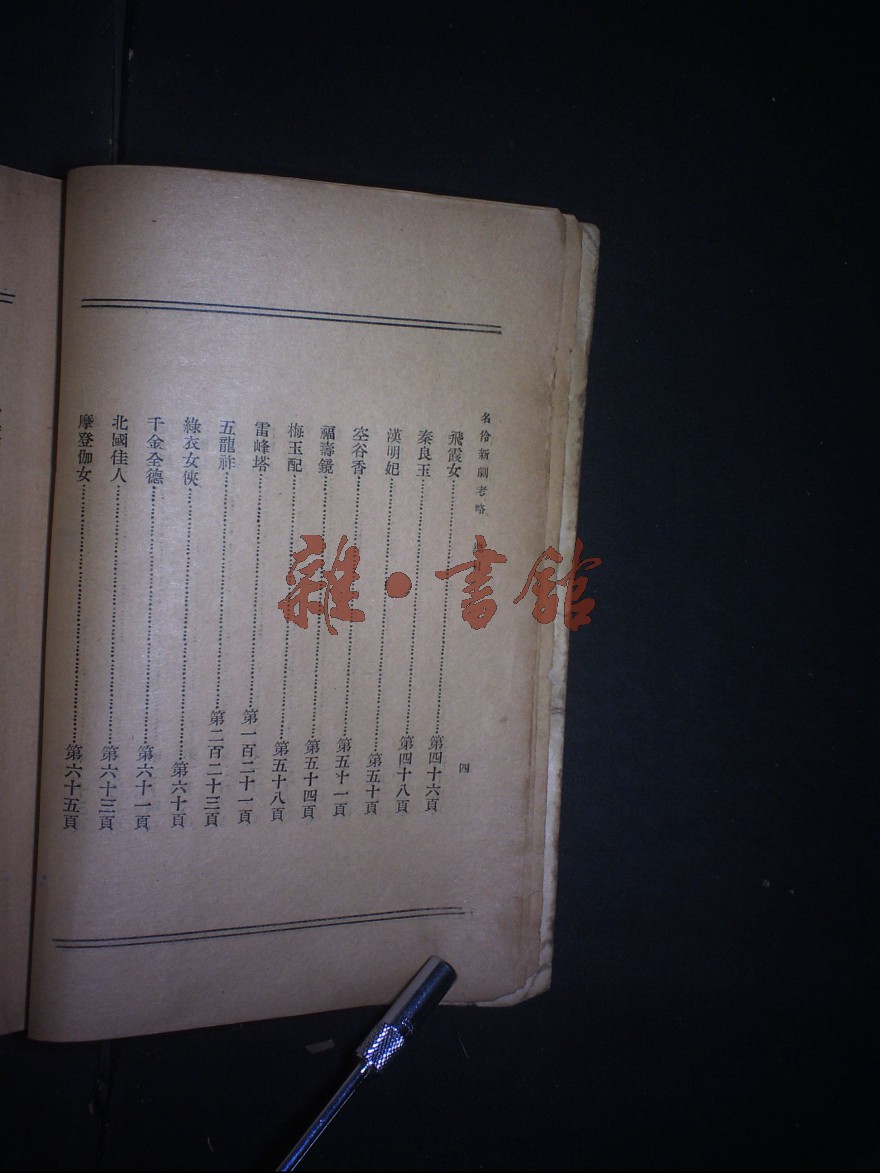 名伶新劇考略
四
飛霞女……第四十六頁
秦良玉……第四十八頁
漢明妃……第五十頁
空谷香……第五十一頁
福壽鏡……第五十四頁
梅玉配……第五十八頁
雷峰塔……第一百二十一頁
五龍祚……第二百二十三頁
綠衣女俠……第六十頁
千金全德……第六十一頁
北國佳人……第六十三頁
摩登伽女……第六十五頁
雜·書館